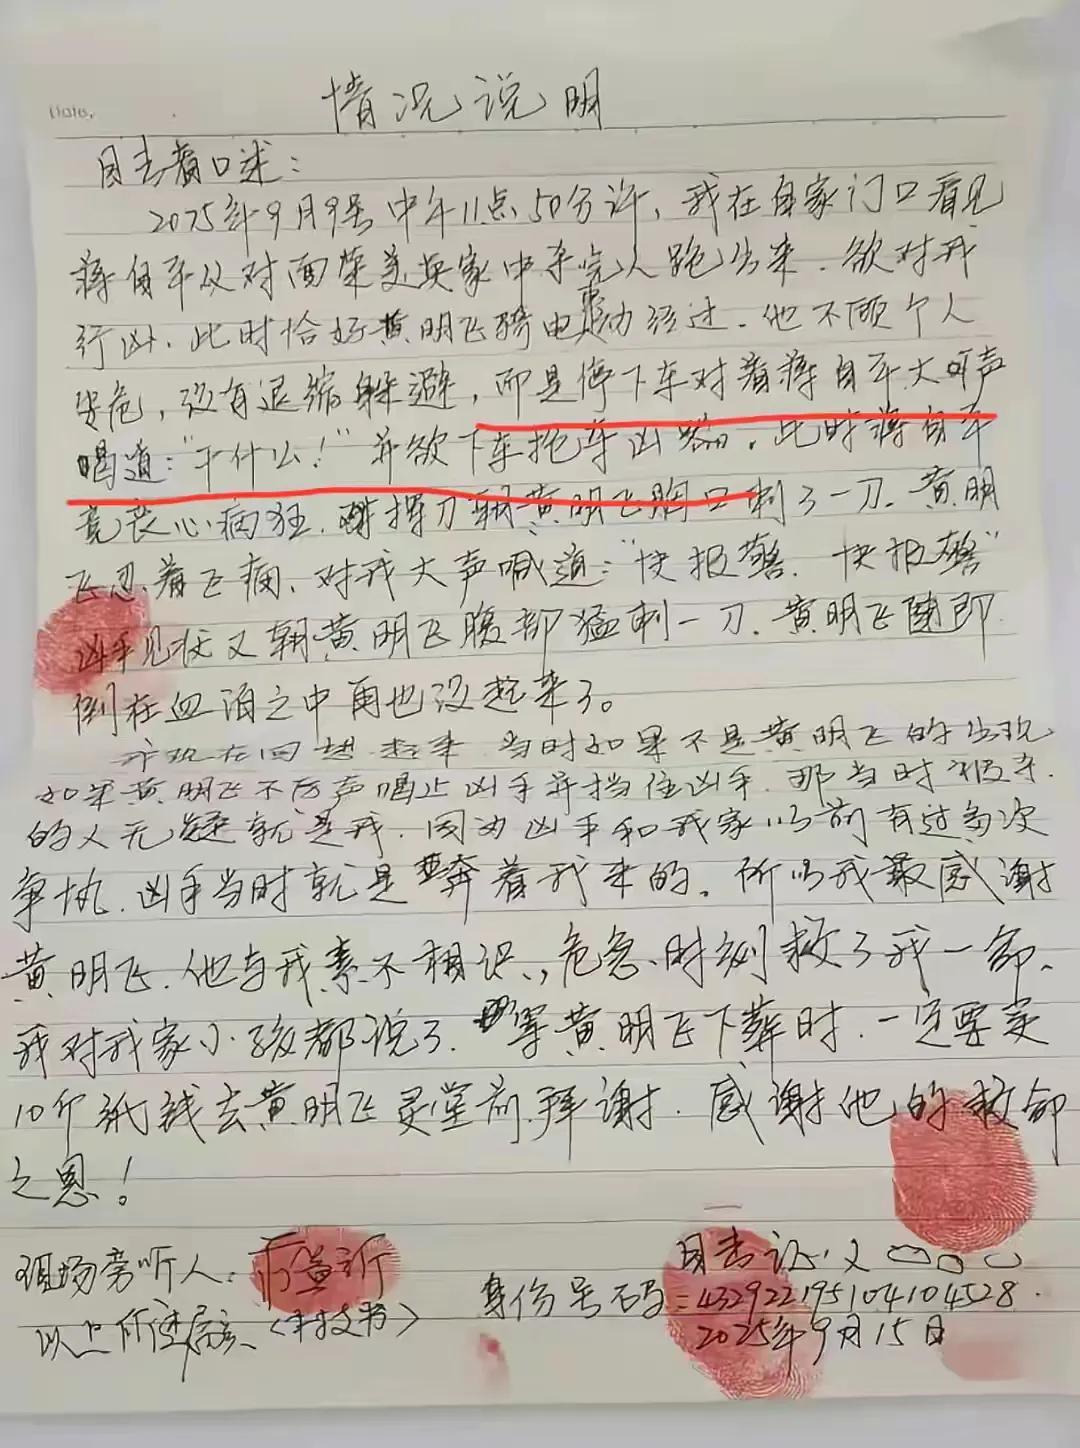 Date.
情况说明
目击者口述：
2025年9月9号中午11点50分许，我在自家门口看见
蒋自平从对面荣美英家中杀完人跑出来．欲对我
行凶．此时恰好黄明飞骑电动经过．他不顾个人
安危，没有退缩躲避，而是停下车对着蒋自平大吼声
喝道：“干什么！”并欲下车拖夺凶器．此时蒋自平
竟丧心病狂．挥刀朝黄明飞胸口刺了一刀．黄明
飞忍着飞痛．对我大声喊道：“快报警．快报警”
凶手见状又朝黄明飞腹部猛刺一刀．黄明飞随即
倒在血泊之中再也没起来了。
我现在回想起来．当时如果不是黄明飞的出现
如果黄明飞不厉声喝止凶手并挡住凶手．那当时被杀
的人无疑就是我．因为凶手和我家以前有过多次
争执．凶手当时就是奔着我来的。所以我最感谢
黄明飞．他与我素不相识，危急时刻救了我一命．
我对我家小孩都说了．等黄明飞下葬时．一定要买
10斤纸钱去黄明飞灵堂前拜谢．感谢他的救命
之恩！
现场旁听人：
以上所述属实 〈村支书〉
目击证人
身份号码：432922195104104528．
2025年9月15日